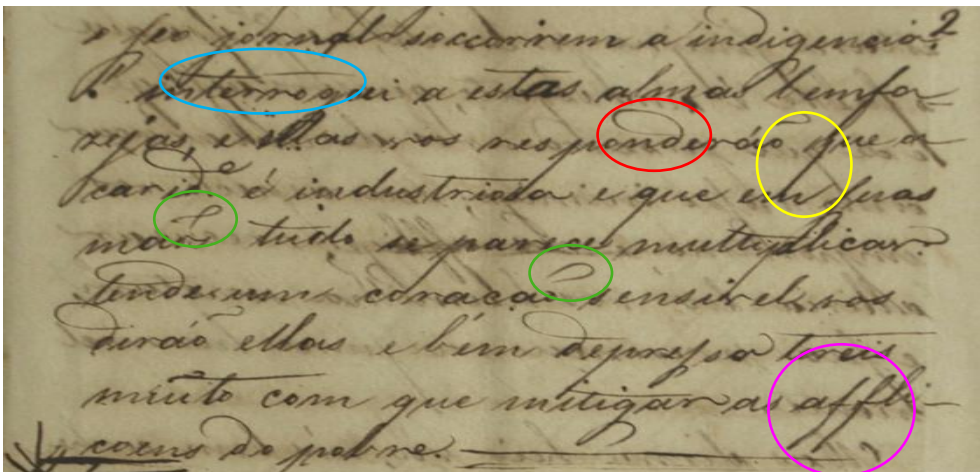 o seo jornal soccorrem a indigencia? 2
P. interrogui a estas almas bemfa-
zejas, e ellas vos responderão que a
carid.e é industriosa e que em suas
maõs tudo se parece multiplicar
tende um coração sensivel, vos
dirão ellas e bem depressa treis
muito com que mitigar as affli-
coens do pobre.